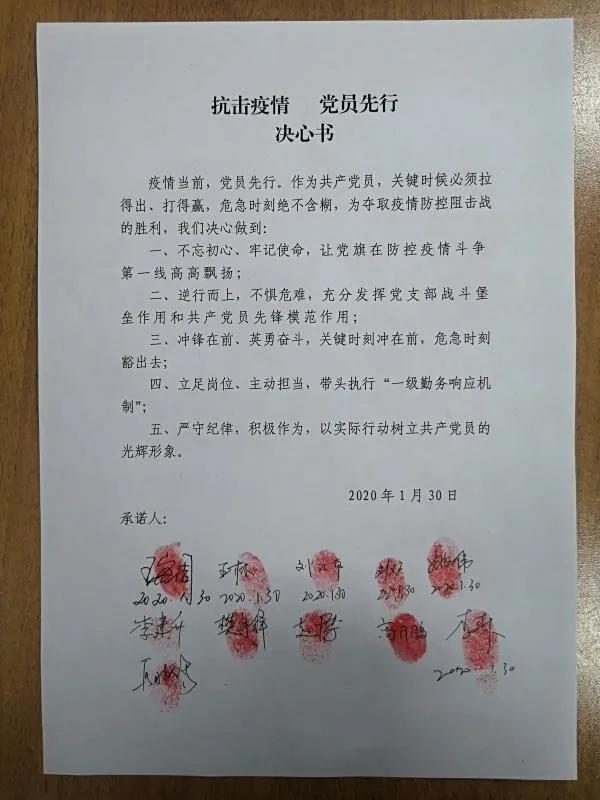 抗击疫情 党员先行
决心书
疫情当前，党员先行。作为共产党员，关键时候必须拉
得出、打得赢，危急时刻绝不含糊，为夺取疫情防控阻击战
的胜利，我们决心做到：
一、不忘初心、牢记使命，让党旗在防控疫情斗争
第一线高高飘扬；
二、逆行而上，不惧危难，充分发挥党支部战斗堡
垒作用和共产党员先锋模范作用；
三、冲锋在前、英勇奋斗，关键时刻冲在前，危急时刻
豁出去；
四、立足岗位、主动担当，带头执行“一级勤务响应机
制”；
五、严守纪律，积极作为，以实际行动树立共产党员的
光辉形象。
2020年1月30日
承诺人：
王林
2020.1.30 2020.1.30 2020.1.30
李建升 高月鹏
2020.1.30